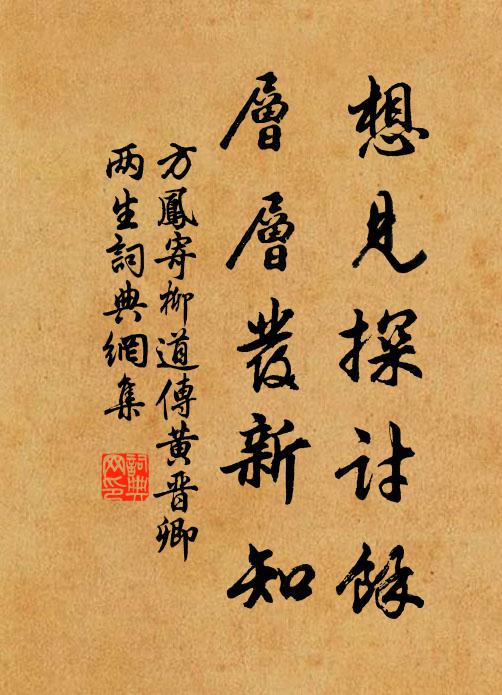 想見探討餘
層層發新知
方鳳寄柳道傳黃晋卿
两生詞典網集
詞典
网印